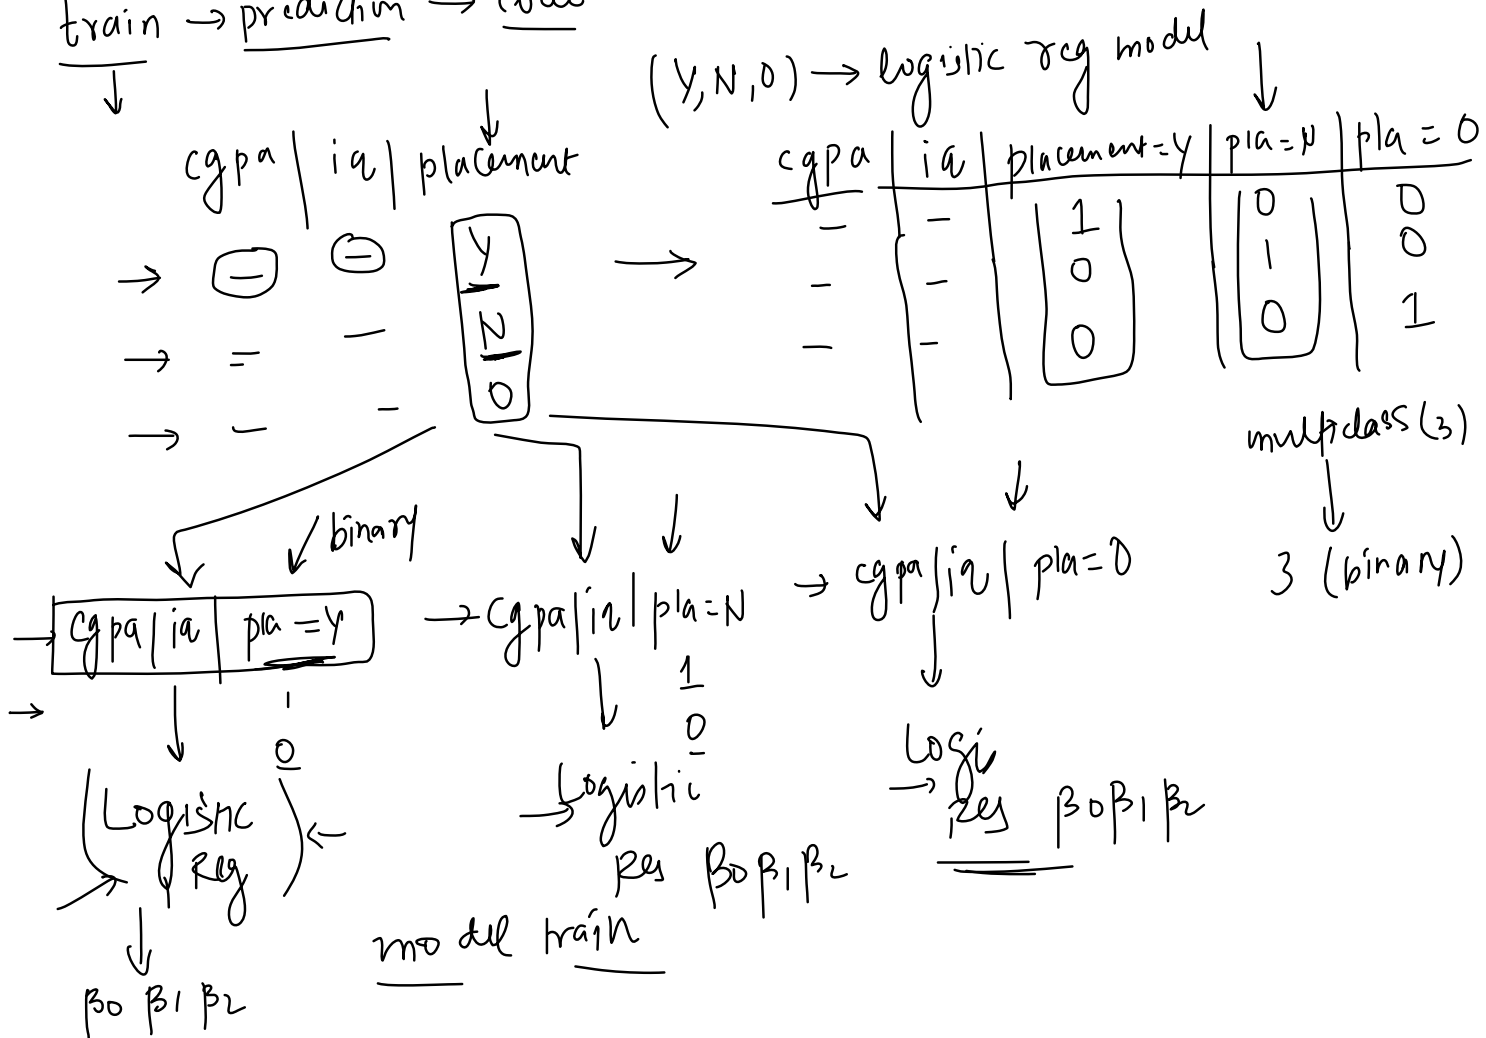 train → prediction →
(Y, N, O) → logistic reg model
cgpa | iq | placement
Y
N
O
→
cgpa | iq | placement=Y | pla=N | pla=O
- - 1 0 0
- - 0 1 0
- - 0 0 1
multiclass (3)
3 (binary)
binary
cgpa | iq | pla=Y
1
0
Logistic
Reg
β0 β1 β2
→ cgpa | iq | pla=N
1
0
Logistic
Reg β0 β1 β2
→ cgpa | iq | pla=O
Logi
Reg β0 β1 β2
model train